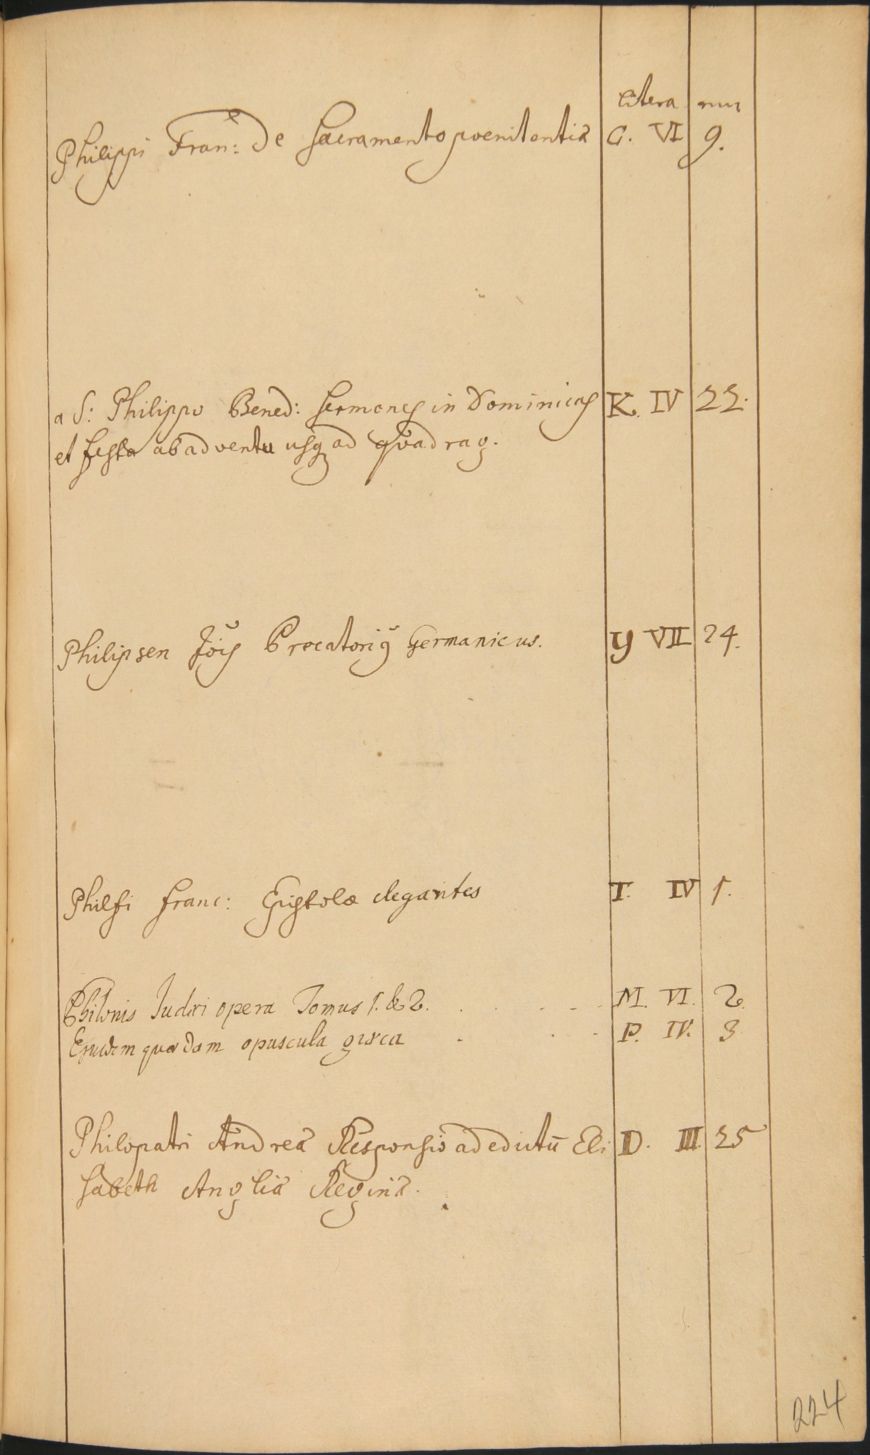 litera num
Philippi Fran: De Sacramento poenitentiæ C. VI 9.
a S: Philippo Bened: Sermones in Dominicas K. IV 22.
et festa ab adventu usq ad quadrag.
Philipsen Jois Procatoriũ Germanicus. Y VII 24.
Philfi Franc: Epistolæ elegantes T. IV 1.
Philonis Judæi opera Tomus 1. & 2. M. VI. 2
Ejusdem quædam opuscula græca P. IV. 3
Philopatri Andreæ Responsio ad edictũ Eli D. III 25
sabeth Angliæ Reginæ.
224